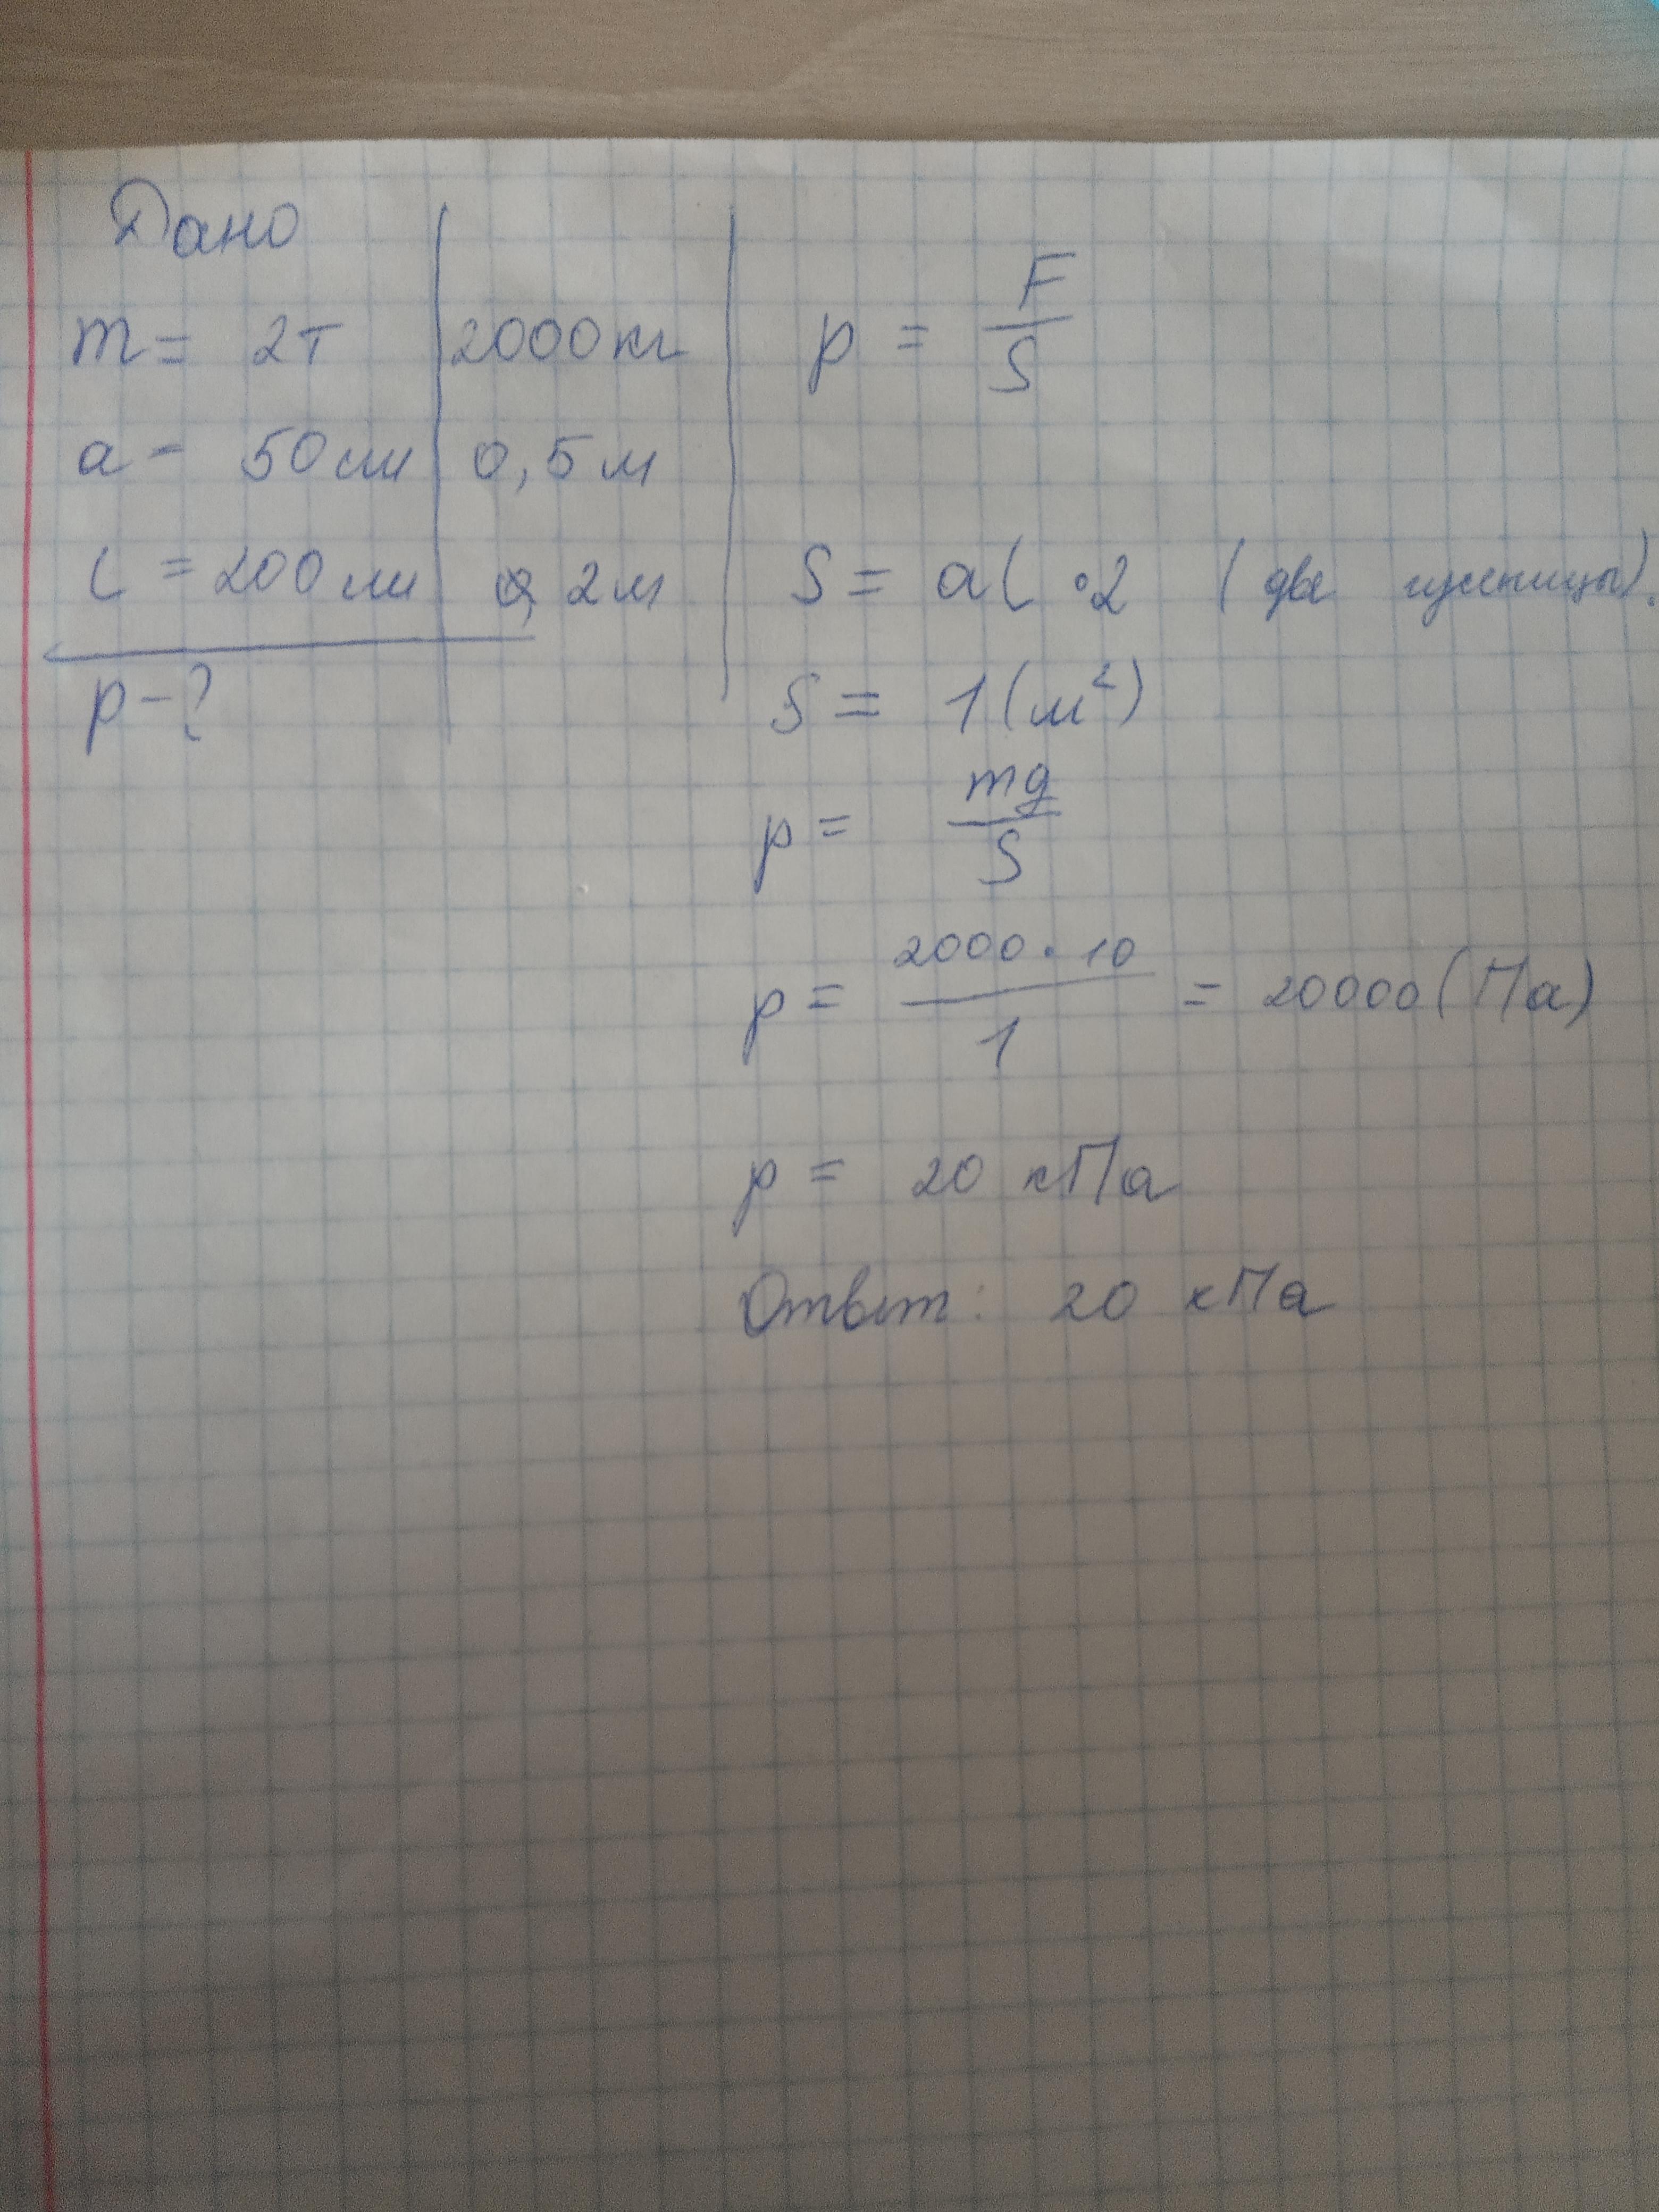 Дано
m = 2т 2000кг p = F/S
a - 50см 0,5м
l = 200см 2м S = al · 2 (две гусеницы).
p - ? S = 1(м²)
p = mg/S
p = 2000 · 10 / 1 = 20000(Па)
p = 20 кПа
Ответ: 20 кПа